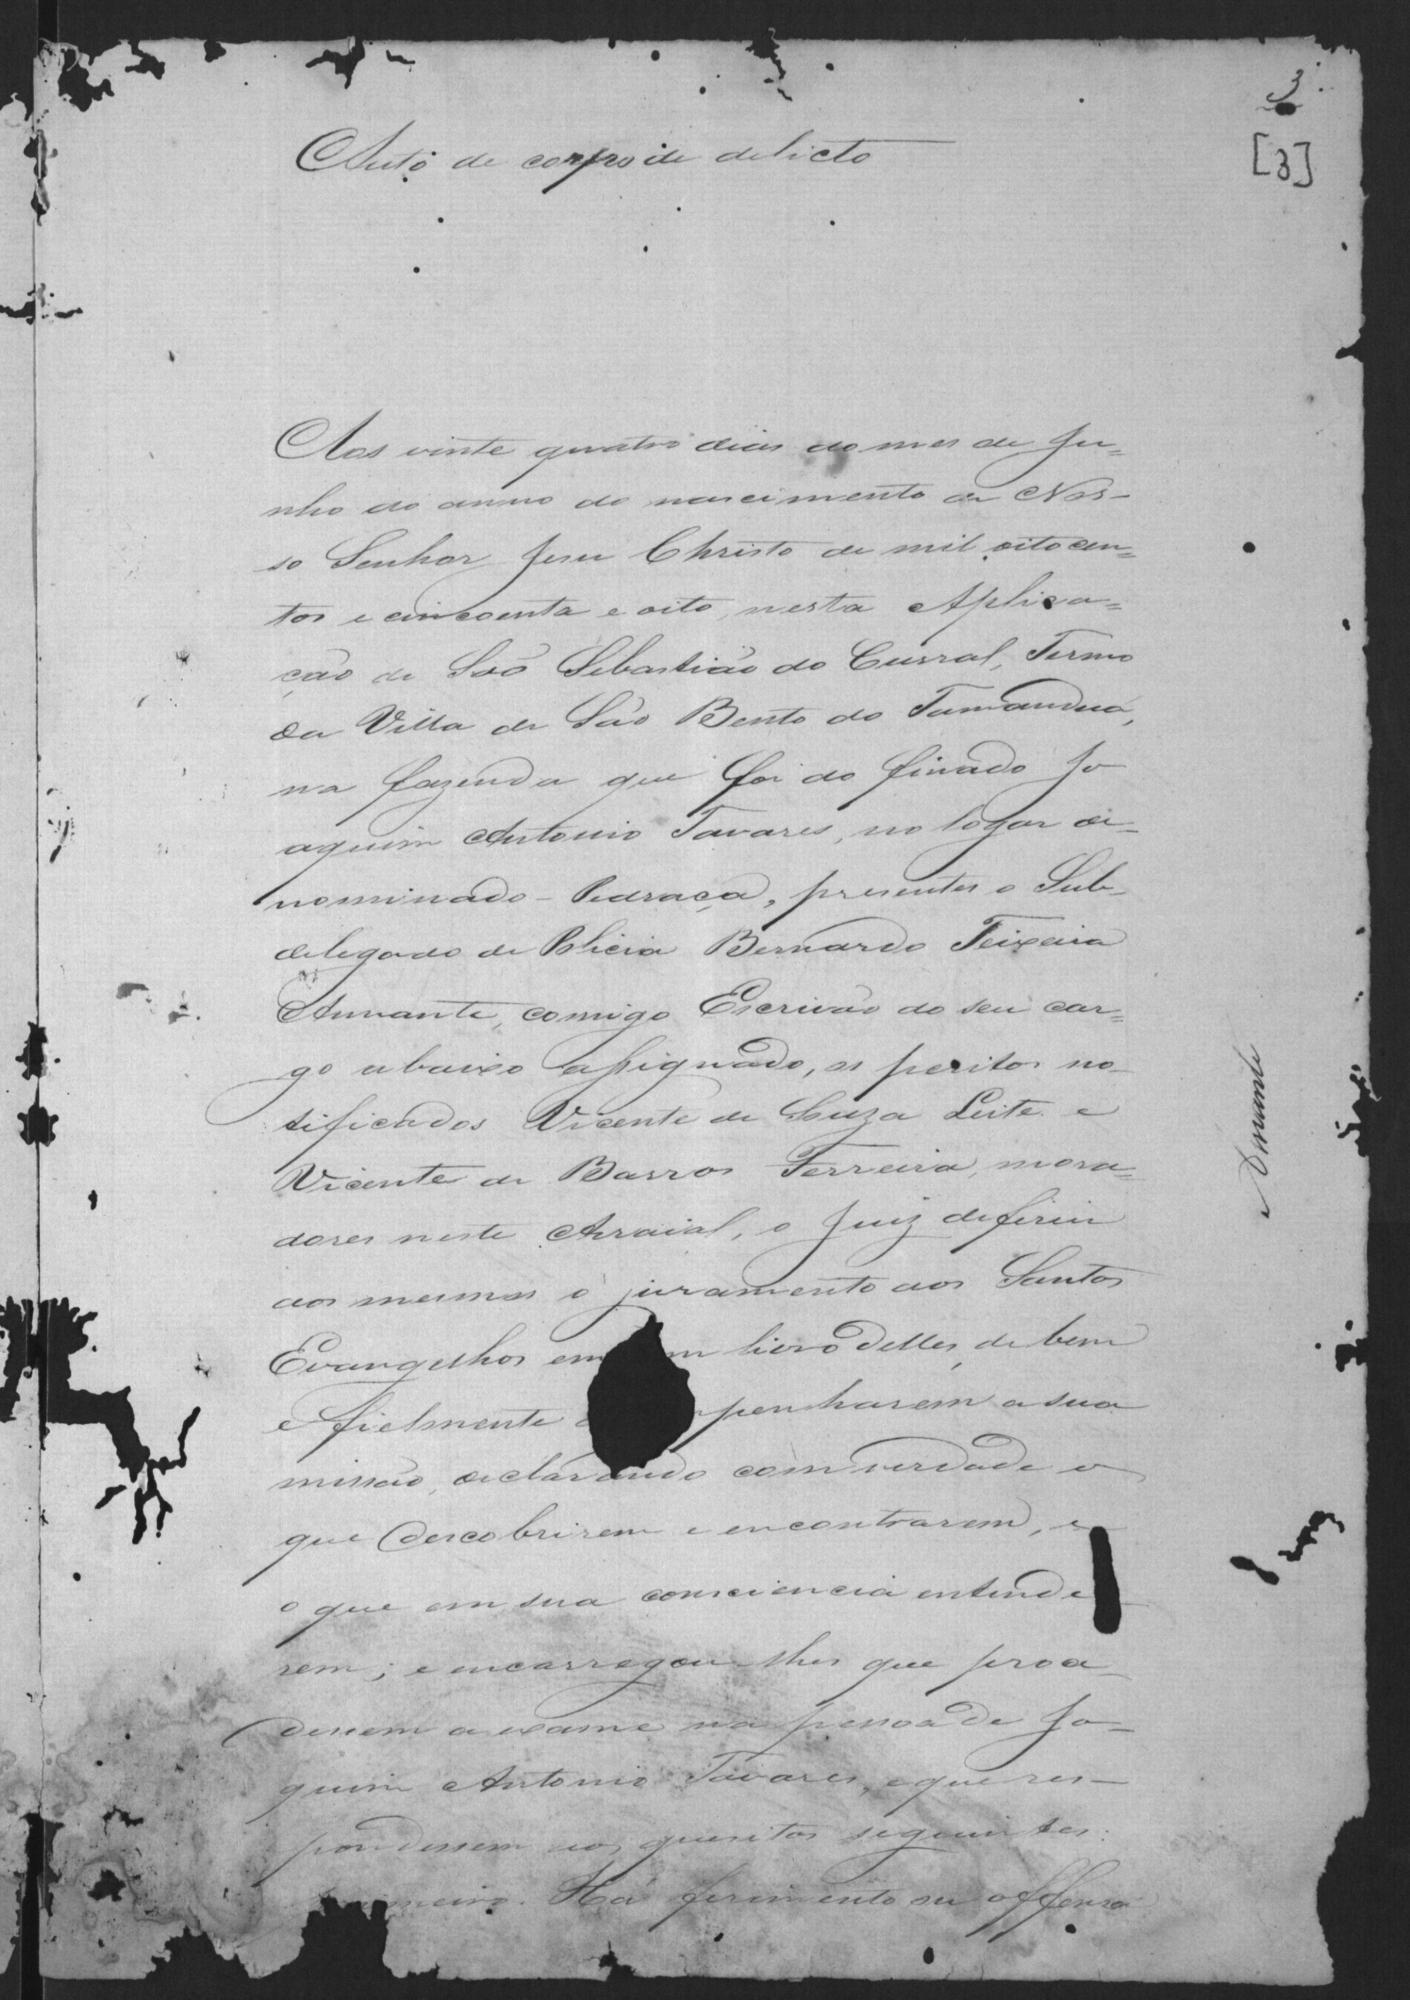 3
[3]
Auto de corpo de delicto
Aos vinte quatro dias do mes de Ju=
nho do anno do nascimento de Nos-
so Senhor Jesu Christo de mil oitocen=
tos e cincoenta e oito, nesta Aplica=
ção de São Sebastião do Curral, Termo
da Villa de São Bento do Tamandua,
na fazenda que foi do finado Jo
aquim Antonio Tavares, no logar de-
nominado - Pedraça, presentes o Sub-
delegado de Policia Bernardo Teixeira
Amante, comigo Escrivão do seu car=
go abaixo assignado, os peritos no-
tificados Vicente de Souza Leite e
Vicente de Barros Ferreira, mora=
dores neste Arraial, o Juiz deferiu
aos mesmos o juramento aos Santos
Evangelhos em um livro delles, de bem
e fielmente penharem a sua
missão, declarando com verdade o
que descobrirem e encontrarem, e
o que em sua consciencia entende
rem; e encarregou-lhes que proce-
dessem a exame na pessoa de Jo-
quim Antonio Tavares, e que res-
pondessem aos quesitos seguintes:
meiro. Há ferimento ou offensa
Amante